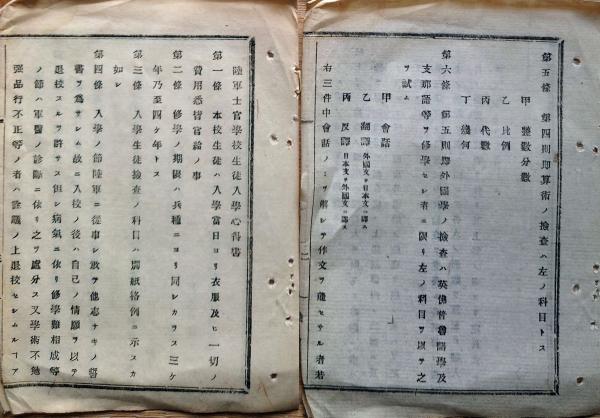 陸軍士官學校生徒入學心得書
第一條 本校生徒ハ入學當日ヨリ衣服及ヒ一切ノ
費用悉皆官給ノ事
第二條 修學ノ期限ハ兵種ニヨリ同シカラス三ケ
年乃至四ケ年トス
第三條 入學生徒檢査ノ科目ハ別紙格例ニ示スカ
如シ
第四條 入學ノ節陸軍ニ從事シ敢テ他志ナキノ誓
書ヲ爲サシム故ニ入校ノ後ハ自己ノ情願ヲ以テ
退校スルヲ許サス但シ病氣ニ依リ修學難相成等
ノ節ハ軍醫ノ診斷ニ依リ之ヲ處分ス又學術不勉
强品行不正等ノ者ハ詮議ノ上退校セシムルヿア
第五條 第四則即算術ノ檢査ハ左ノ科目トス
甲 整數分數
乙 比例
丙 代數
丁 幾何
第六條 第五則即外國學ノ檢査ハ英佛普魯學及
支那語等ヲ修學セシ者ニ限リ左ノ科目ヲ以テ之
ヲ試ム
甲 會話
乙 翻譯 外國文ヲ日本文ニ譯ス
丙 反譯 日本文ヲ外國文ニ譯ス
右三件中會話ノミヲ解シテ作文ヲ能セサル者若